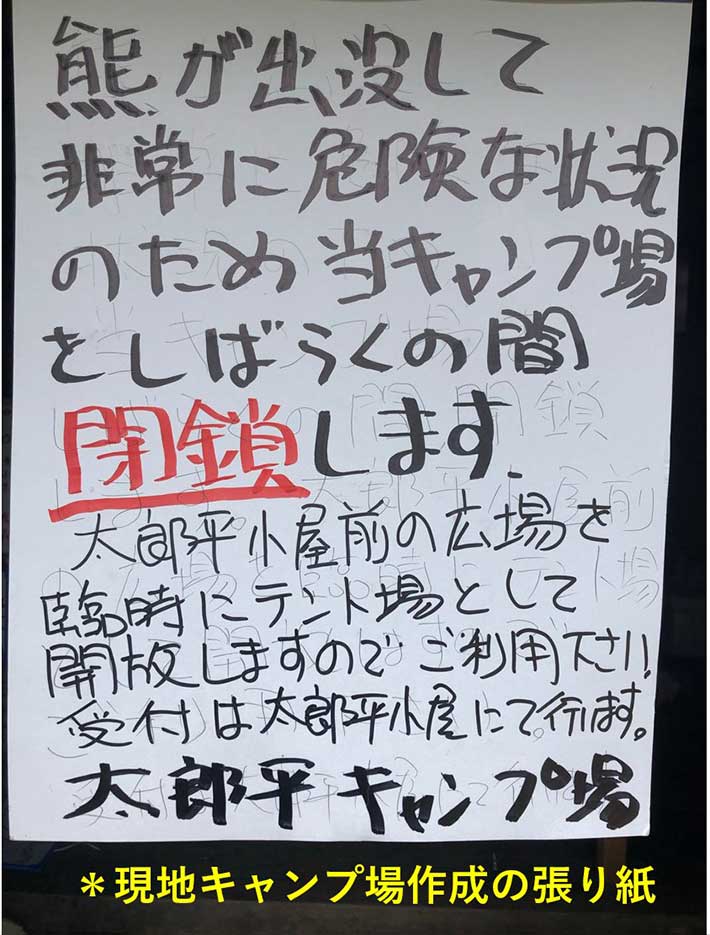 熊が出没して
非常に危険な状況
のため当キャンプ場
をしばらくの間
閉鎖します.
太郎平小屋前の広場を
臨時にテント場として
開放しますので ご利用下さい!
受付は太郎平小屋にて行います。
太郎平キャンプ場
＊現地キャンプ場作成の張り紙